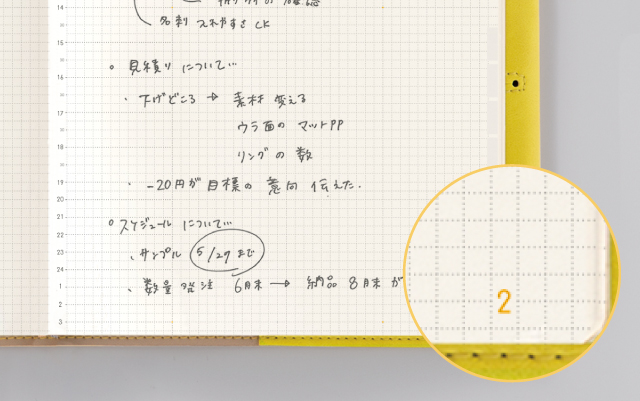 名刺 入れやすさ CK
○ 見積りについて…
・下げどころ → 素材 変える
ウラ面の マットPP
リングの数
・-20円が目標の 意向 伝えた.
○ スケジュールについて…
・サンプル 5/29まで
・数量 発注 6月末 → 納品 8月末 が
14
15
16
17
18
19
20
21
22
23
24
1
2
3
2